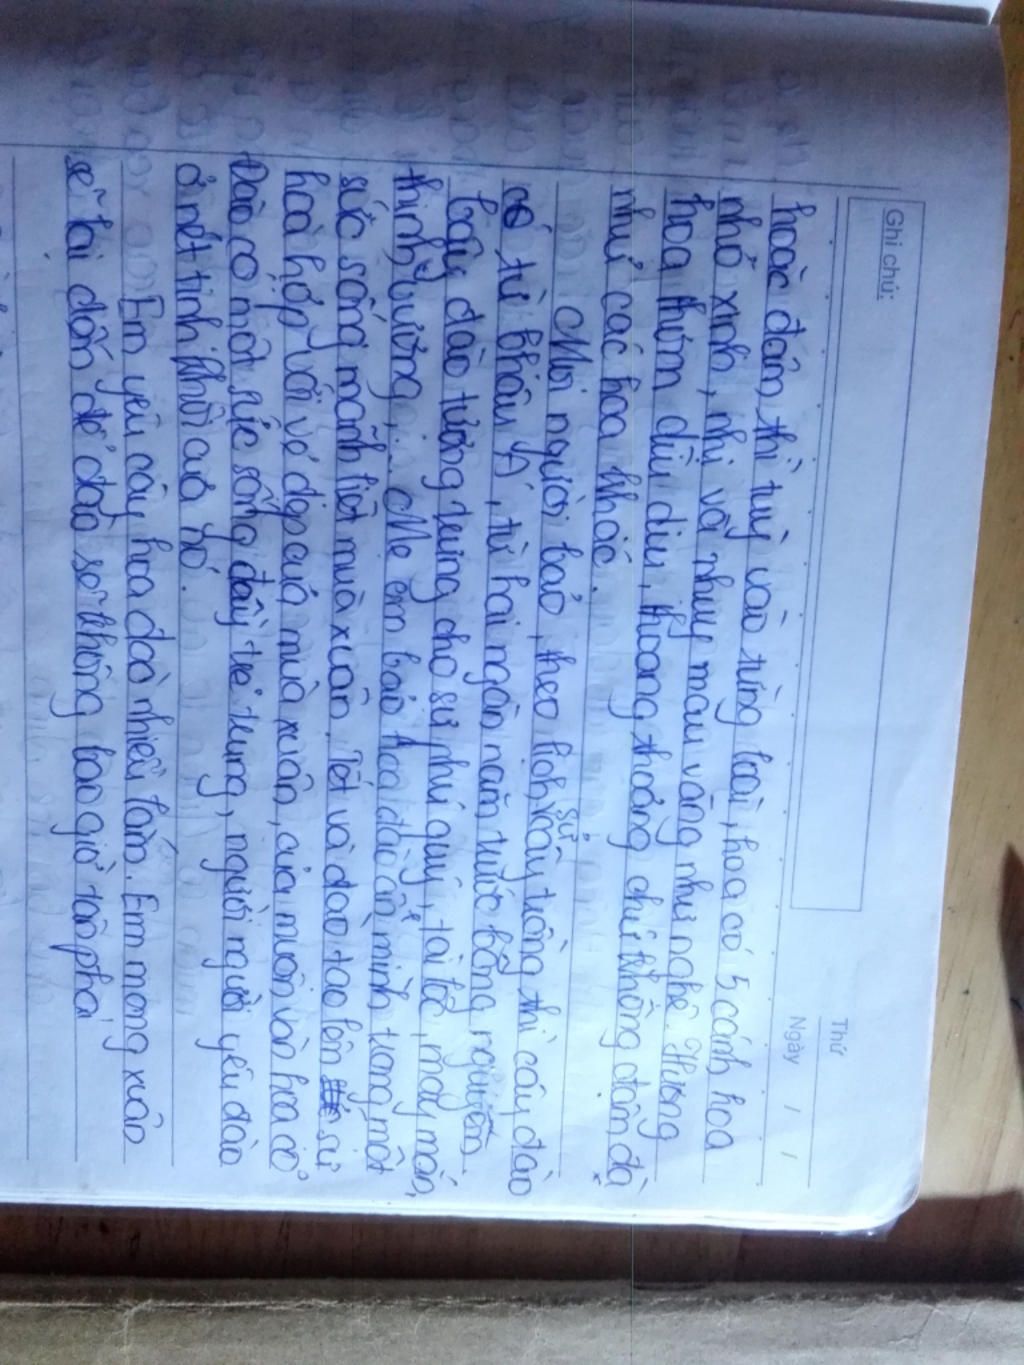 Ghi chú:
Thứ
Ngày / /
hoặc đậm thì tuỳ vào từng loài, hoa có 5 cánh hoa
nhỏ xinh, nhị và nhuỵ màu vàng như nghệ. Hương
hoa thơm dìu dịu, thoang thoảng chứ không đậm đà
như các hoa khác.
Mọi người bảo, theo lịch sử cây trồng thì cây đào
có từ khâu kì, từ hai ngàn năm trước bông nguyên.
cây đào tượng trưng cho sự phú quý, tài lộc, may mắn,
thịnh vượng,... Mẹ em bảo hoa đào ẩn mình trong một
sức sống mãnh liệt mùa xuân. Tết và đào tạo lên sự
hoà hợp với vẻ đẹp của mùa xuân, của muôn vàn hoa cỏ
Đào có một sức sống đầy trẻ trung, người người yêu đào
ở nét tinh khôi của nó.
Em yêu cây hoa đào nhiều lắm. Em mong xuân
sẽ lại đến để đào sẽ không bao giờ tàn phai